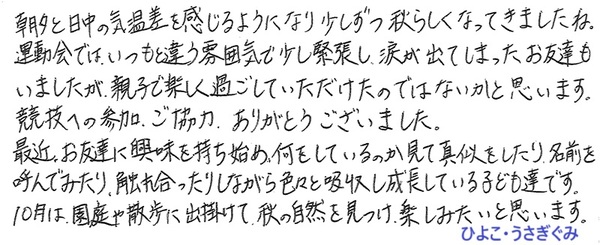 朝夕と日中の気温差を感じるようになり少しずつ秋らしくなってきましたね。
運動会では、いつもと違う雰囲気で少し緊張し、涙が出てしまったお友達も
いましたが、親子で楽しく過ごしていただけたのではないかと思います。
競技への参加、ご協力、ありがとうございました。
最近、お友達に興味を持ち始め、何をしているのか見て真似をしたり、名前を
呼んでみたり、触れ合ったりしながら色々と吸収し成長している子ども達です。
10月は、園庭や散歩に出掛けて、秋の自然を見つけ、楽しみたいと思います。
ひよこ・うさぎぐみ